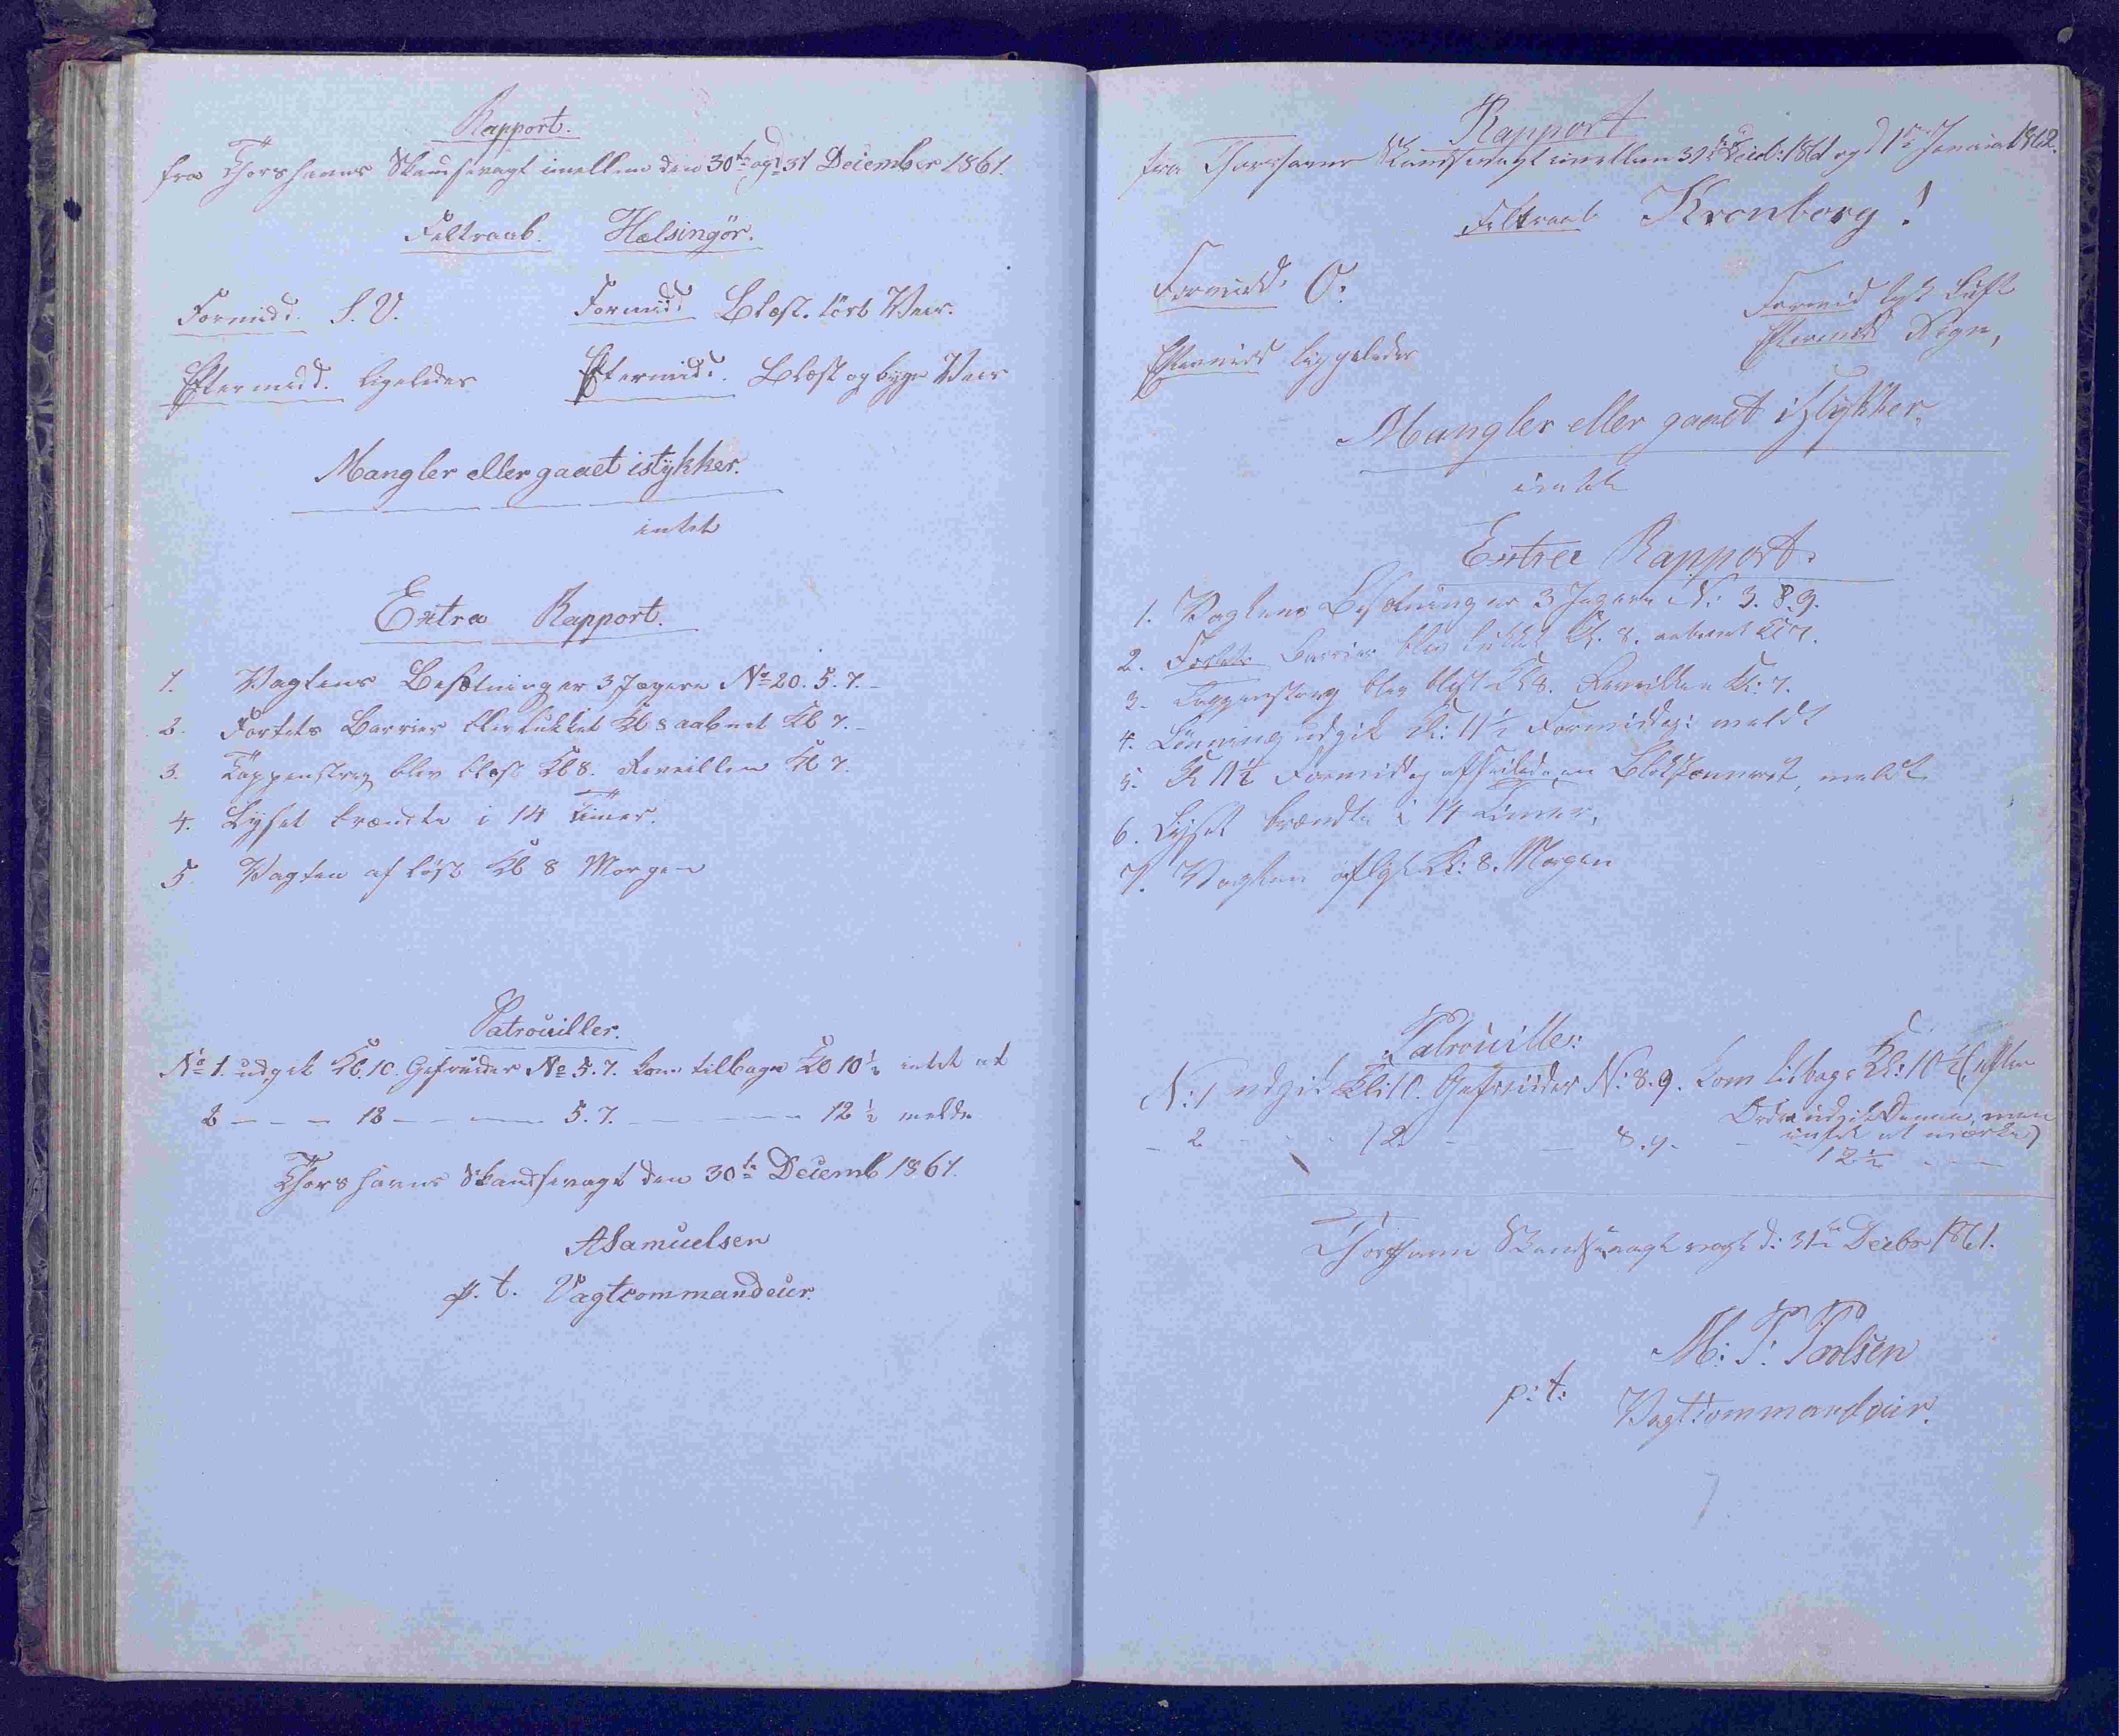 Rapport.
fra Thorshavns Skandsevagt imellem den 30te og 31 December 1861.
Feltraab. Helsingör.
Formidd. S. V. Formidd. Blæst. tört Veir.
Eftermidd. ligeledes Eftermidd. Blæst og byge Veir
Mangler eller gaaet istykker.
intet
Extra Rapport.
1. Vagtens Besætning er 3 Jægere No 20. 5. 7.
2. Fortets Barrier blev lukket Kl 8 aabnet Kl 7.
3. Tappenstreg blev blæst Kl 8. Reveillen Kl 7.
4. Lyset brændte i 14 Timer.
5. Vagten afløst Kl 8 Morgen
Patrouiller.
No 1. udgik Kl. 10. Gefreider No 5. 7. kom tilbage Kl 10 ½ intet at
2 — — — 12 — — — 5. 7. — — — 12 ½ melde
Thorshavns Skandsevagt den 30te Decemb 1861.
ASamuelsen
p. t. Vagtcommandeur.
Rapport
fra Thorshavns Skandsevagt imellem 31te Decb: 1861 og d 1ste Januar 1862.
Feltraab Kronborg!
Formidd. O. Formid tyk Luft
Eftermidd liggeledes Eftermidd Regn,
Mangler eller gaaet istykker.
intet
Extra Rapport.
1. Vagtens Besætning er 3 Jægere N: 3. 8. 9.
2. Fortets Barrier blev lukket Kl. 8. aabnet Kl 7.
3. Tappenstreg blev blæst Kl 8. Reveillen Kl: 7.
4. Lönning udgik Kl: 11½ Formiddag: meldt
5. Kl 11½ Formiddag afseilede en meldt
6. Lyset brændte i 14 Timer.
7. Vagten afløst Kl: 8. Morgen
Patrouille:
N: 1 udgik Kl: 10. Gefreider N: 8. 9. kom tilbage Kl: 10½ (efter
Ordre udgik Denne, men
- 2 - - - 12 - - 8. 9. - intet at mærke)
12½ - -
Thorshavns Skandsevagt d: 31te Decbr 1861.
M: P: Polsen
p: t: Vagtcommandeur.